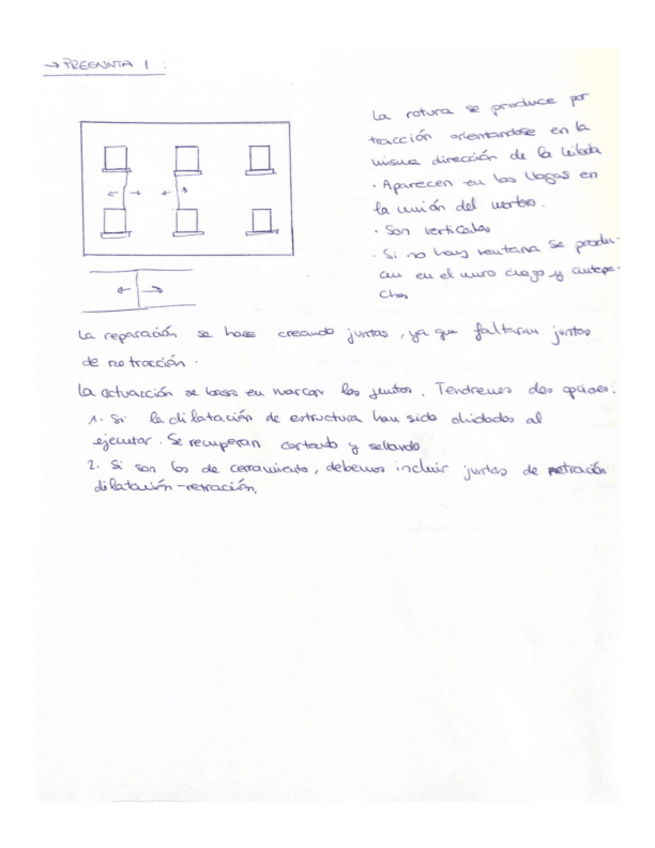 → PREGUNTA 1 :
La rotura se produce por
tracción orientandose en la
misma dirección de la
· Aparecen en las llagas en
la unión del mortero.
· Son verticales
· Si no hay ventana se produ-
cen en el muro ciego y antepe-
chos
La reparación se hace creando juntas, ya que faltaran juntas
de retracción.
La actuacción se basa en marcar las juntas. Tendremos dos opciones:
1. Si la dilatación de estructura han sido olvidados al
ejecutar. Se recuperan cortando y sellando
2. Si son los de cerramiento, debemos incluir juntas de retración
dilatación-retracción.